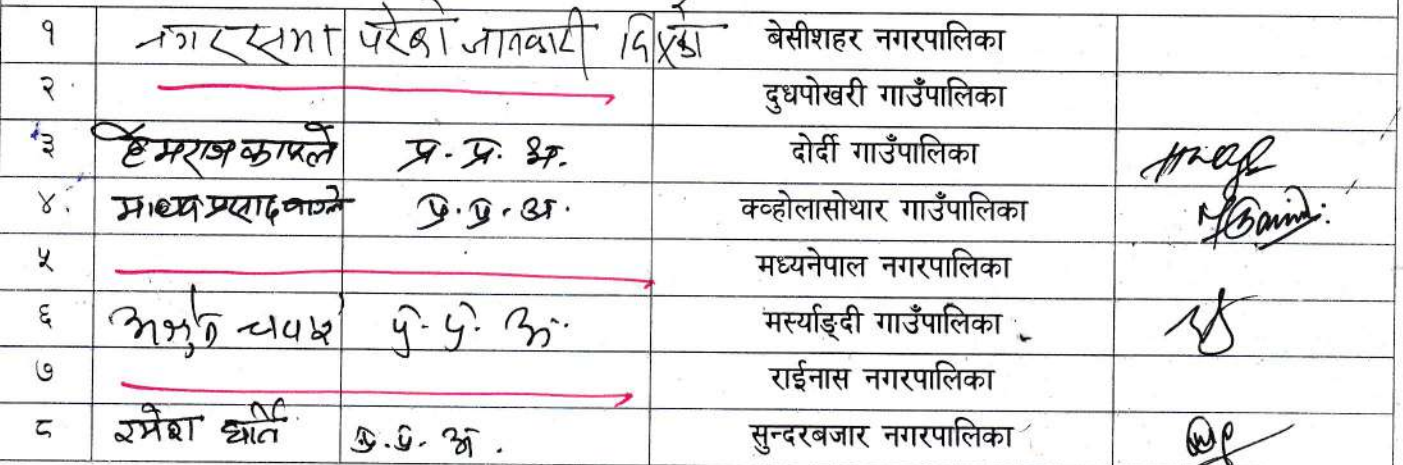 १ नगरसभा परेको जानकारी दिएको बेसीशहर नगरपालिका
२ दुधपोखरी गाउँपालिका
३ हेमराज काफ्ले प्र. प्र. अ. दोर्दी गाउँपालिका
४. माधव प्रसाद वाग्ले प्र. प्र. अ. क्व्होलासोथार गाउँपालिका
५ मध्यनेपाल नगरपालिका
६ प्र. प्र. अ. मर्स्याङ्दी गाउँपालिका
७ राईनास नगरपालिका
८ रमेश प्र. प्र. अ. सुन्दरबजार नगरपालिका